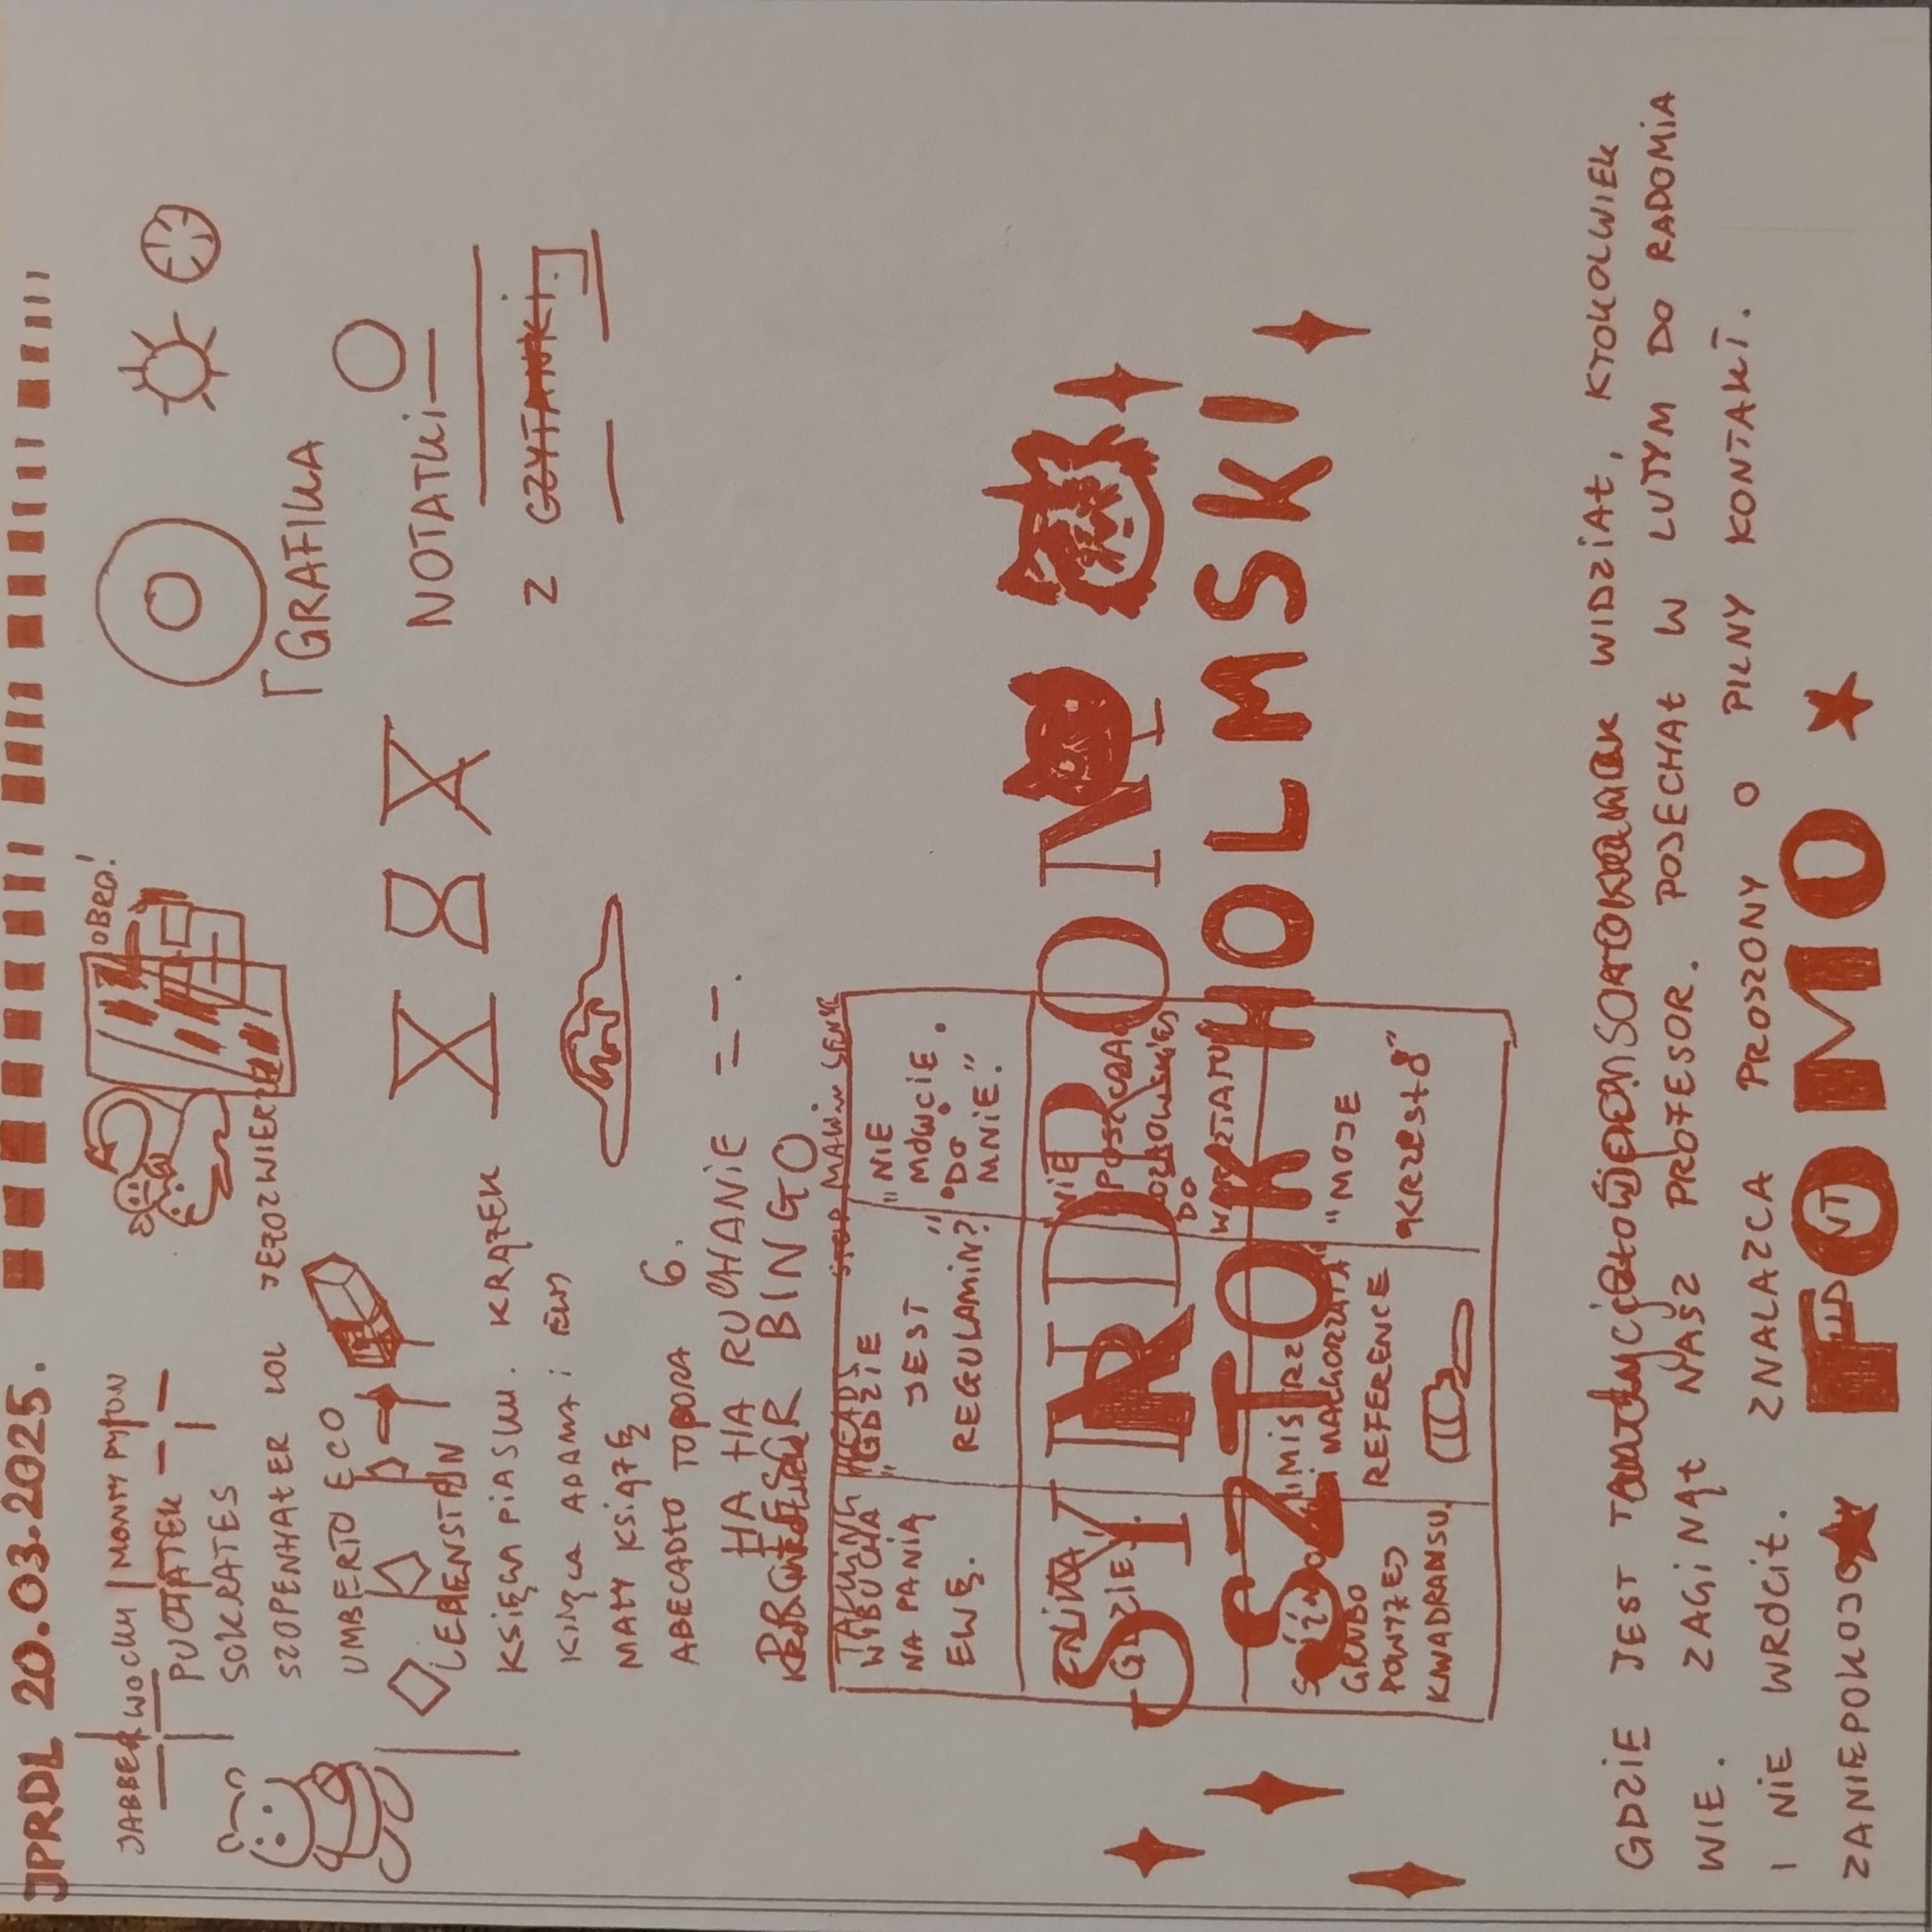 JPRDL 20.03.2025.
JABBERWOCKY | MONTY PYTON
PUCHATEK
SOKRATES
SZOPENHAŁER LOL JEŻOZWIERZE
OBRO!
UMBERTO ECO
LEBENSTEIN
KSIĘGA PIASKU. KRĄŻEK
KSIĘGA ADAMA i EWY
MAŁY KSIĄŻĘ
ABECADŁO TOPORA 6.
HA HA RUCHANIE = -.
PROFESOR BINGO.
GRAFIKA
NOTATKi
Z CZYTANKi.
TALKING HEADS STOP MAKIN SENSE
WYBUCHA NA PANIĄ EWĘ.
"GDZIE JEST REGULAMIN?"
"NIE MÓWCIE DO MNIE."
GDZIE
NIE
DO WARSZTATU
GRUBO POWYŻEJ KWADRANSU.
"MISTRZ i MAŁGORZATA" REFERENCE
"MOJE KRZESŁO"
SYNDROM
SZTOKHOLMSKI
GDZIE JEST WIDZIAŁ, KTOKOLWIEK
WIE. ZAGINĄŁ NASZ PROFESOR. POJECHAŁ W LUTYM DO RADOMIA
I NIE WRÓCIŁ. ZNALAZCA PROSZONY O PILNY KONTAKT.
ZANIEPOKOJONY
FOMO